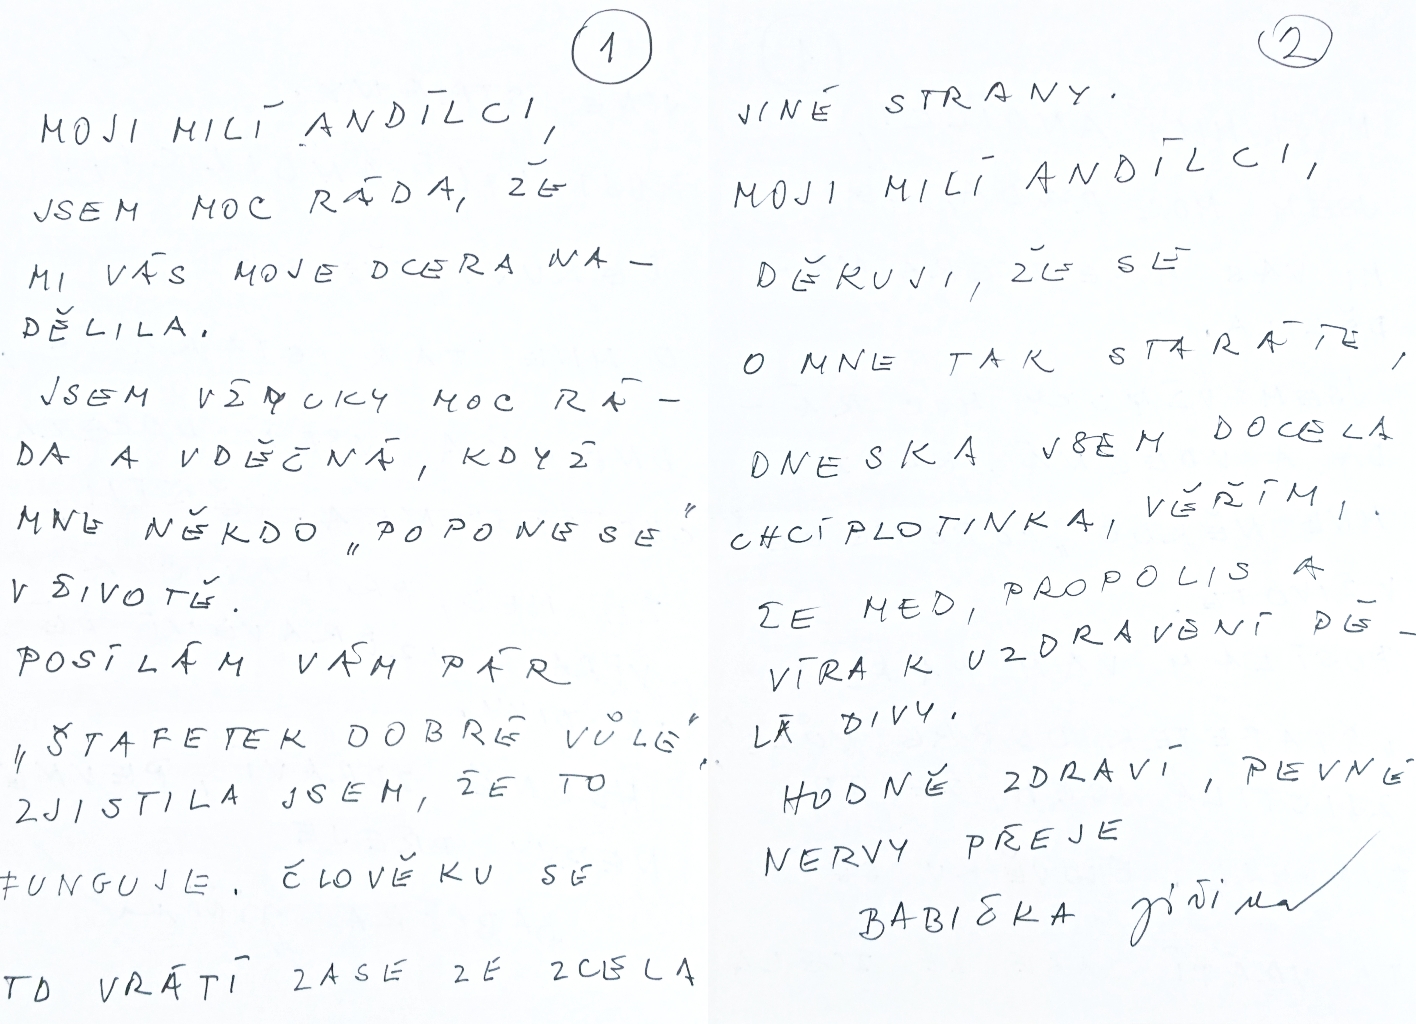 1
MOJI MILÍ ANDÍLCI,
JSEM MOC RÁDA, ŽE
MI VÁS MOJE DCERA NA-
DĚLILA.
JSEM VŽDYCKY MOC RÁ-
DA A VDĚČNÁ, KDYŽ
MNE NĚKDO „POPONESE"
V ŽIVOTĚ.
POSÍLÁM VÁM PÁR
„ŠTAFETEK DOBRÉ VŮLE".
ZJISTILA JSEM, ŽE TO
FUNGUJE. ČLOVĚKU SE
TO VRÁTÍ ZASE ZE ZCELA
2
JINÉ STRANY.
MOJI MILÍ ANDÍLCI,
DĚKUJI, ŽE SE
O MNE TAK STARÁTE,
DNESKA JSEM DOCELA
CHCÍPLOTINKA, VĚŘÍM,
ŽE MED, PROPOLIS A
VÍRA K UZDRAVENÍ DĚ-
LÁ DIVY.
HODNĚ ZDRAVÍ, PEVNÉ
NERVY PŘEJE
BABIČKA Jiřina